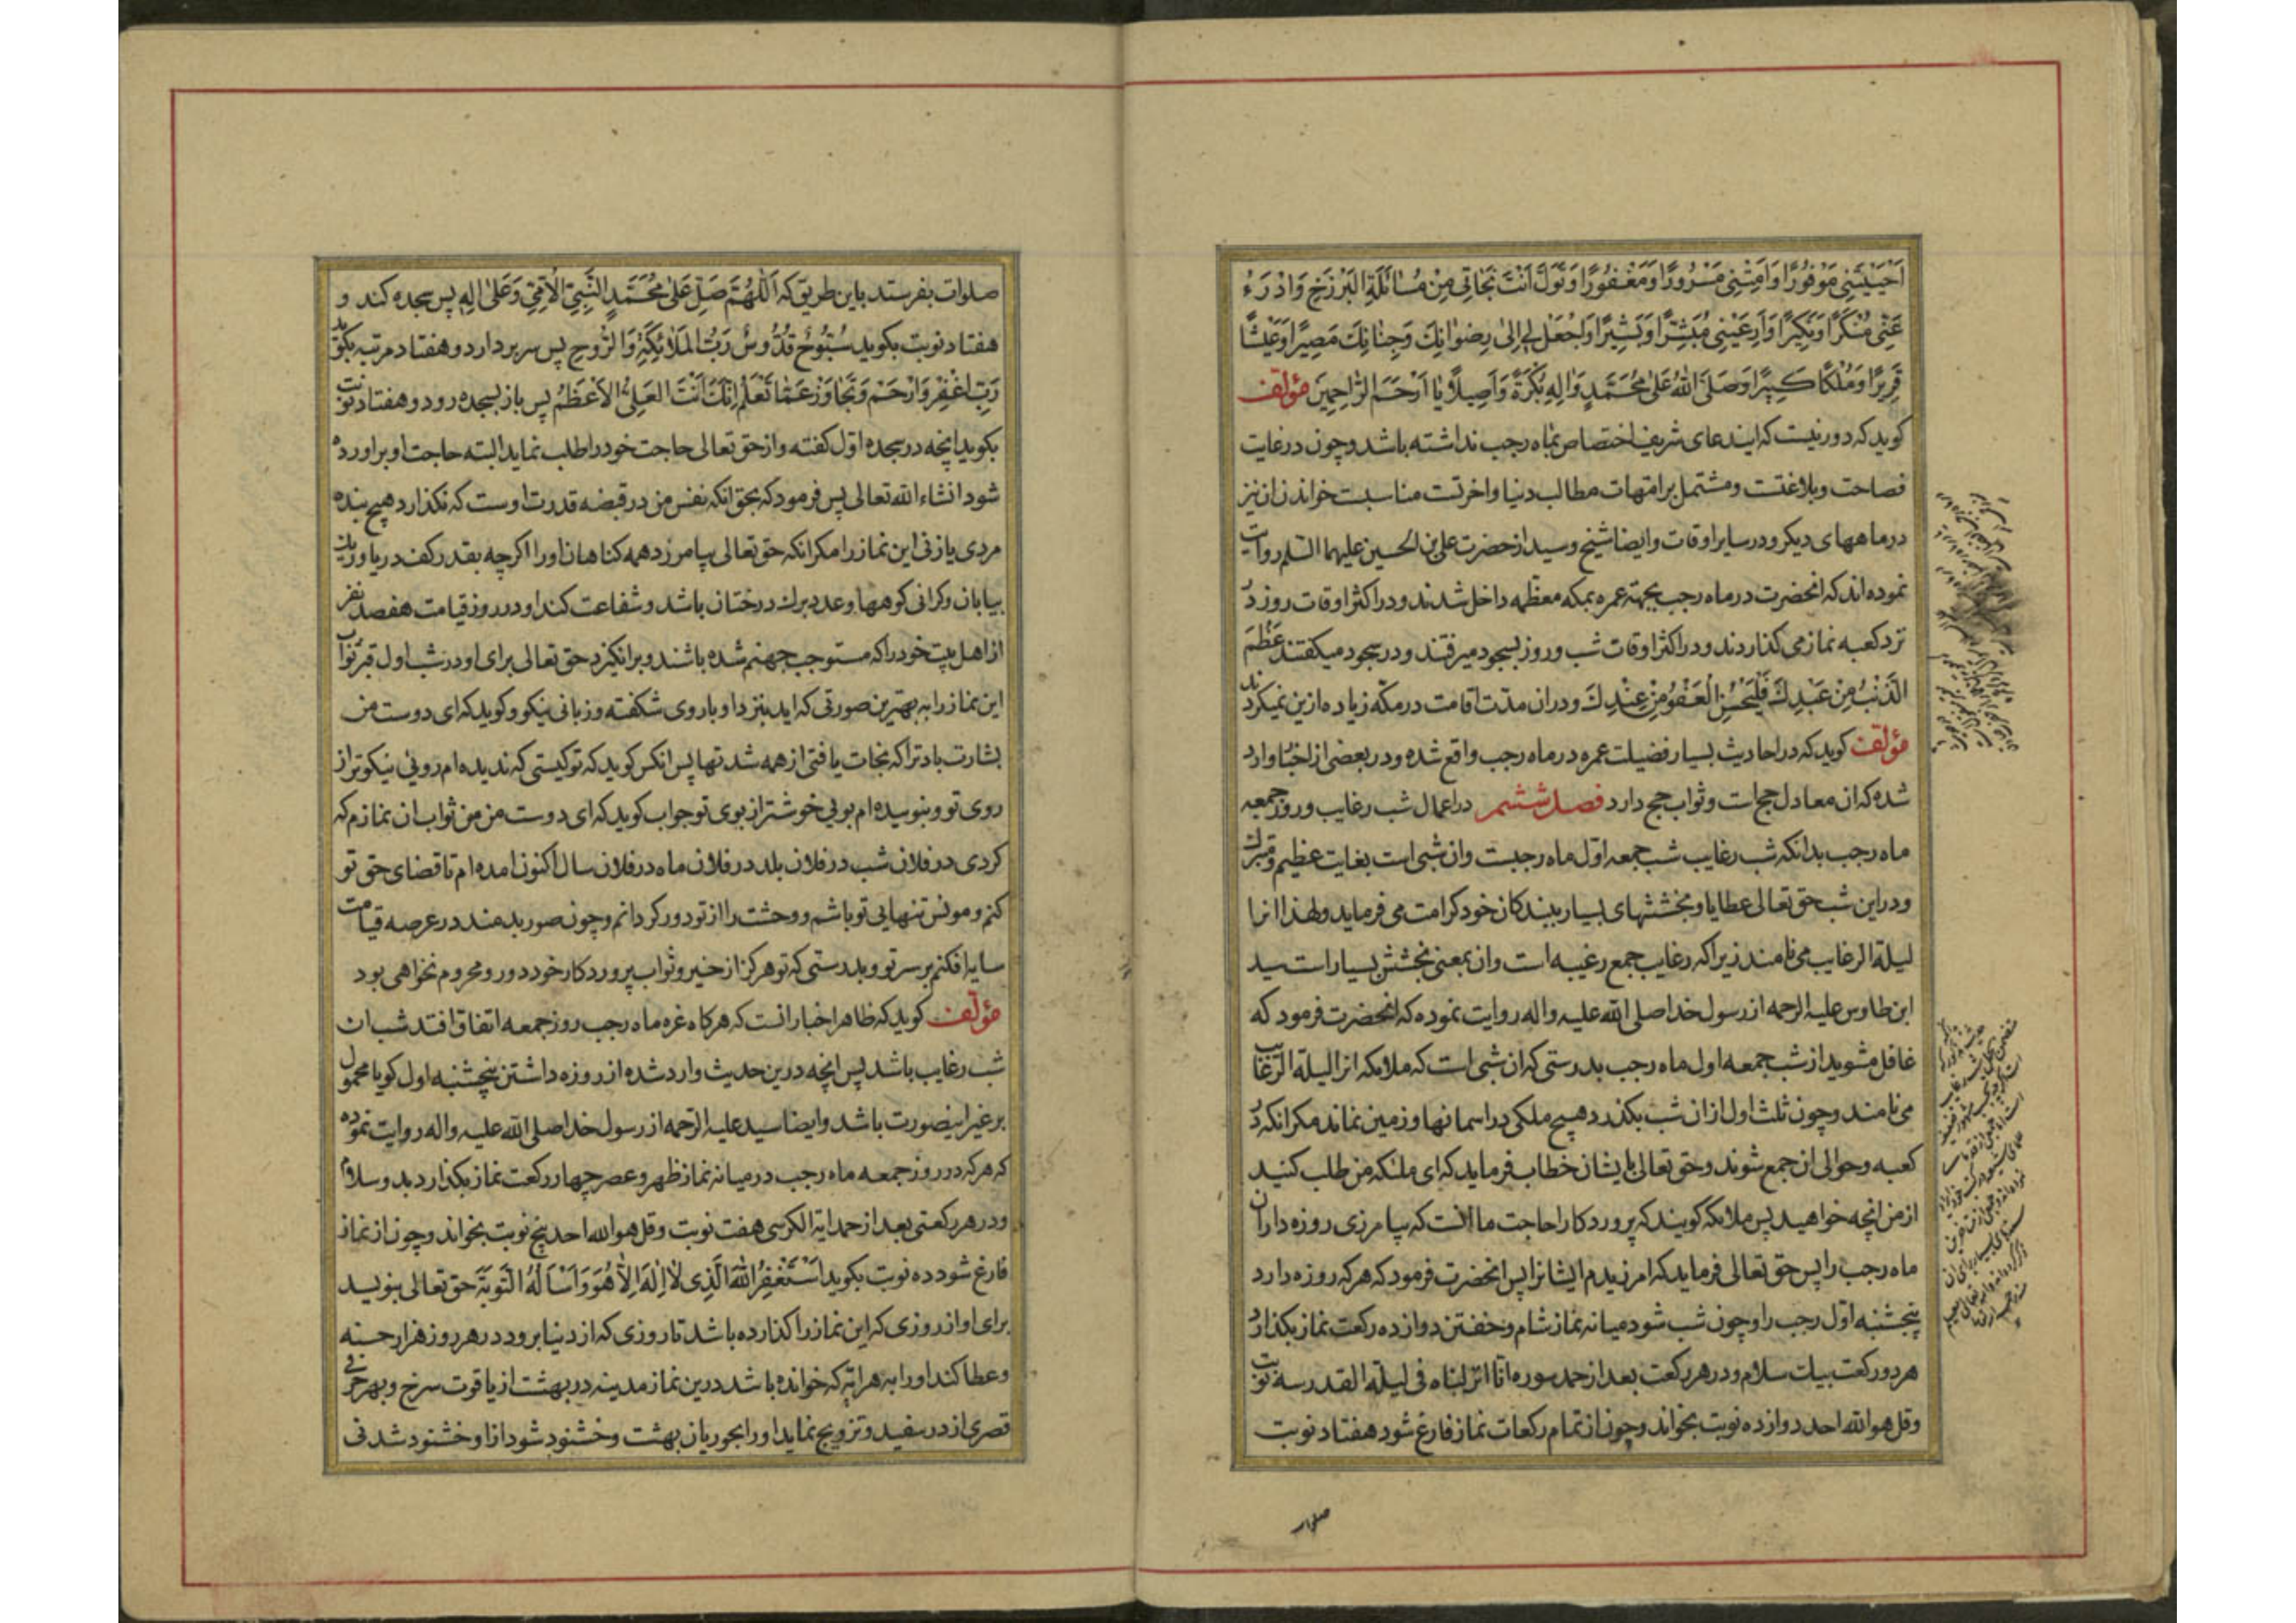 اَحْيَيْتَنِي مَوْفُورًا وَاَمِتْنِي مَسْرُورًا وَمَغْفُورًا وَتَوَلَّ اَنْتَ نَجَاتِي مِنْ مُسٰائَلَةِ الْبَرْزَخِ وَادْرَءْ
عَنِّي مُنْكَرًا وَنَكِيرًا وَاَرِعَيْنِي مُبَشِّرًا وَبَشِيرًا وَاجْعَلْ لِي اِلىٰ رِضْوٰانِكَ وَجِنٰانِكَ مَصِيرًا وَعَيْشًا
قَرِيرًا وَمُلْكًا كَبِيرًا وَصَلَّى اللهُ عَلىٰ مُحَمَّدٍ وَاٰلِهِ بُكْرَةً وَاَصِيلًا يٰا اَرْحَمَ الرّٰاحِمِينَ مؤلف
كويد كه دور نيست كه ايندعاى شريف اختصاص بماه رجب نداشته باشد وچون در غايت
فصاحت وبلاغتست ومشتمل بر امتهات مطالب دنيا واخرتست مناسبست خواندن ان نيز
در ماههاى ديكر ودر ساير اوقات وايضا شيخ وسيد از حضرت على بن الحسين عليهما السلم روايت
نموده اند كه انحضرت در ماه رجب بجهته عمره بمكه معظمه داخل شدند ودر اكثر اوقات روز در
نزد كعبه نماز مى كذاردند ودر اكثر اوقات شب وروز بسجود ميرفتند ودر سجود ميكفتند عَظُمَ
الذَّنْبُ مِنْ عَبْدِكَ فَلْيَحْسُنِ الْعَفْوُ مِنْ عِنْدِكَ ودران مدّت اقامت در مكّه زياده ازين نميكردند
مؤلف كويد كه در احاديث بسيار فضيلت عمره در ماه رجب واقع شده ودر بعضى از اخبار وارد
شده كه ان معادل حج است وثواب حج دارد فصل ششم در اعمال شب رغايب وروز جمعه
ماه رجب بدانكه شب رغايب شب جمعه اوّل ماه رجبست وان شبى است بغايت عظيم ومتبرك
ودر اين شب حق تعالى عطايا وبخششهاى بسيار ببندكان خود كرامت مى فرمايد ولهذا انرا
ليلة الرغايب مى نامند زيرا كه رغايب جمع رغيبه است وان بمعنى بخشش بسيار است سيد
ابن طاوس عليه الرحمه از رسول خدا صلى الله عليه واله روايت نموده كه انحضرت فرمود كه
غافل مشويد از شب جمعه اول ماه رجب بدرستى كه ان شبى است كه ملائكه انرا ليلة الرغايب
مى نامند وچون ثلث اول از ان شب بكذرد هيچ ملكى در اسمانها وزمين نماند مكر انكه در
كعبه وحوالى ان جمع شوند وحق تعالى بايشان خطاب فرمايد كه اى ملئكه من طلب كنيد
از من انچه خواهيد پس ملائكه كويند كه پروردكارا حاجت ما انست كه بيامرزى روزه داران
ماه رجب را پس حق تعالى فرمايد كه امرزيدم ايشانرا پس انحضرت فرمود كه هر كه روزه دارد
پنجشنبه اوّل رجب را وچون شب شود ميانه نماز شام وخفتن دوازده ركعت نماز بكذارد
هر دو ركعت بيك سلام ودر هر ركعت بعد از حمد سوره انا انزلناه فى ليلة القدر سه نوبت
وقل هو الله احد دوازده نوبت بخواند وچون از تمام ركعات نماز فارغ شود هفتاد نوبت
صلوات
صلوات بفرستد باين طريق كه اَللّٰهُمَّ صَلِّ عَلىٰ مُحَمَّدٍ النَّبِيِّ الْاُمِّيِّ وَعَلىٰ اٰلِهِ پس سجده كند و
هفتاد نوبت بكويد سُبُّوحٌ قُدُّوسٌ رَبُّ الْمَلٰائِكَةِ وَالرُّوحِ پس سر بردارد وهفتاد مرتبه بكويد
رَبِّ اغْفِرْ وَارْحَمْ وَتَجٰاوَزْ عَمّٰا تَعْلَمُ اِنَّكَ اَنْتَ الْعَلِيُّ الْاَعْظَمُ پس باز بسجده رود وهفتاد نوبت
بكويد انچه در سجده اوّل كفته واز حق تعالى حاجت خود را طلب نمايد البته حاجت او براورده
شود انشاء الله تعالى پس فرمود كه بحق انكه نفس من در قبضه قدرت اوست كه نكذارد هيچ بنده
مردى يا زنى اين نماز را مكر انكه حق تعالى بيامرزد همه كناهان او را اكرچه بقدر كف دريا وريك
بيابان وكرانى كوهها وعدد برك درختان باشد وشفاعت كند او در روز قيامت هفصد نفر
از اهل بيت خود را كه مستوجب جهنم شده باشند وبرانكيزد حق تعالى براى او در شب اول قبر ثواب
اين نماز را به بهترين صورتى كه ايد بنزد او با روى شكفته وزبانى نيكو وكويد كه اى دوست من
بشارت باد ترا كه نجات يافتى از همه شدتها پس انكس كويد كه تو كيستى كه نديده ام روئى نيكوتر از
روى تو ونبوييده ام بوئى خوشتر از بوى تو جواب كويد كه اى دوست من من ثواب ان نمازم كه
كردى در فلان شب در فلان بلد در فلان ماه در فلان سال اكنون امده ام تا قضاى حق تو
كنم ومونس تنهايى تو باشم ووحشت را از تو دور كردانم وچون صور بدمند در عرصه قيامت
سايه افكنم بر سر تو وبدرستى كه تو هركز از خير وثواب پروردكار خود دور ومحروم نخواهى بود
مؤلف كويد كه ظاهر اخبار انست كه هركاه غره ماه رجب روز جمعه اتفاق افتد شب ان
شب رغايب باشد پس انچه درين حديث وارد شده از روزه داشتن پنجشنبه اول كويا محمول
بر غير اينصورت باشد وايضا سيد عليه الرّحمه از رسول خدا صلى الله عليه واله روايت نموده
كه هر كه در روز جمعه ماه رجب در ميانه نماز ظهر وعصر چهار ركعت نماز بكذارد بدو سلام
ودر هر ركعتى بعد از حمد اية الكرسى هفت نوبت وقل هو الله احد پنج نوبت بخواند وچون از نماز
فارغ شود ده نوبت بكويد اَسْتَغْفِرُ اللهَ الَّذِى لٰا اِلٰهَ اِلّٰا هُوَ وَاَسْاَلُهُ التَّوْبَةَ حق تعالى بنويسد
براى او از روزى كه اين نماز را كذارده باشد تا روزى كه از دنيا برود در هر روز هزار حسنه
وعطا كند او را به هر ايه كه خوانده باشد درين نماز مدينه در بهشت از ياقوت سرخ وبهر حرفى
قصرى از در سفيد وتزويج نمايد او را بحوريان بهشت وخشنود شود از او خشنود شدنى